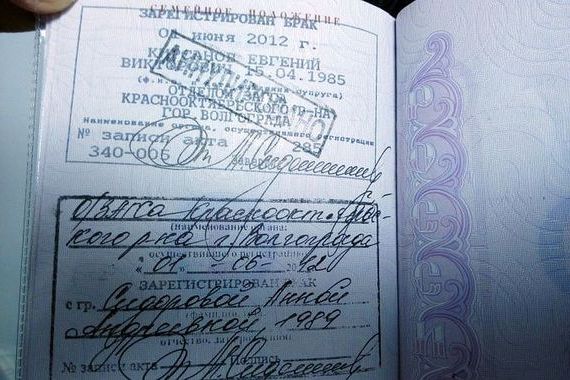 СЕМЕЙНОЕ ПОЛОЖЕНИЕ
ЗАРЕГИСТРИРОВАН БРАК
01 ИЮНЯ 2012 г.
ЕВГЕНИЙ
15.04.1985
ОТДЕЛОМ
КРАСНООКТЯБРЬСКОГО Р-НА
ГОР. ВОЛГОГРАДА
Наименование органа, осуществившего регистрацию
№ записи акта 285
340-006 Заверил
О/ЗАГСа Краснооктябрьс-
кого р-на г. Волгограда
(наименование органа,
осуществившего регистрацию)
"01" - 06 - 2012
ЗАРЕГИСТРИРОВАН БРАК
с гр. Сидоровой Анной
Андреевной, 1989
отчество, дата рождения
№ записи акта Подпись